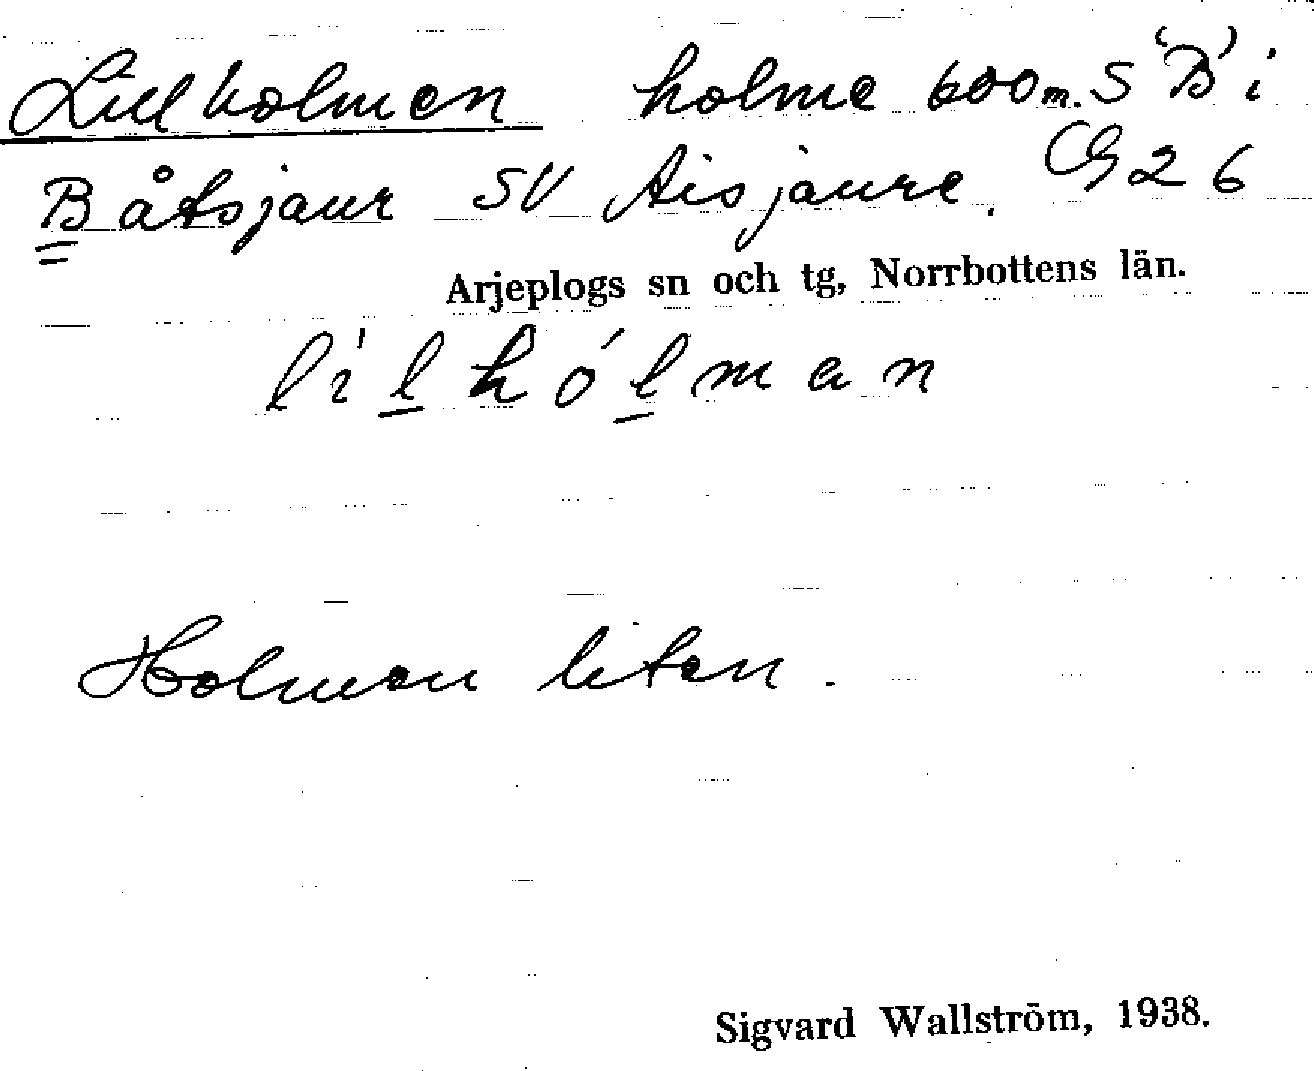 Lillholmen holme 600 m. S 'B' i
Båtsjaur SV Aisjaure. G26
Arjeplogs sn och tg, Norrbottens län.
lìlhólman
Holmen liten.
Sigvard Wallström, 1938.